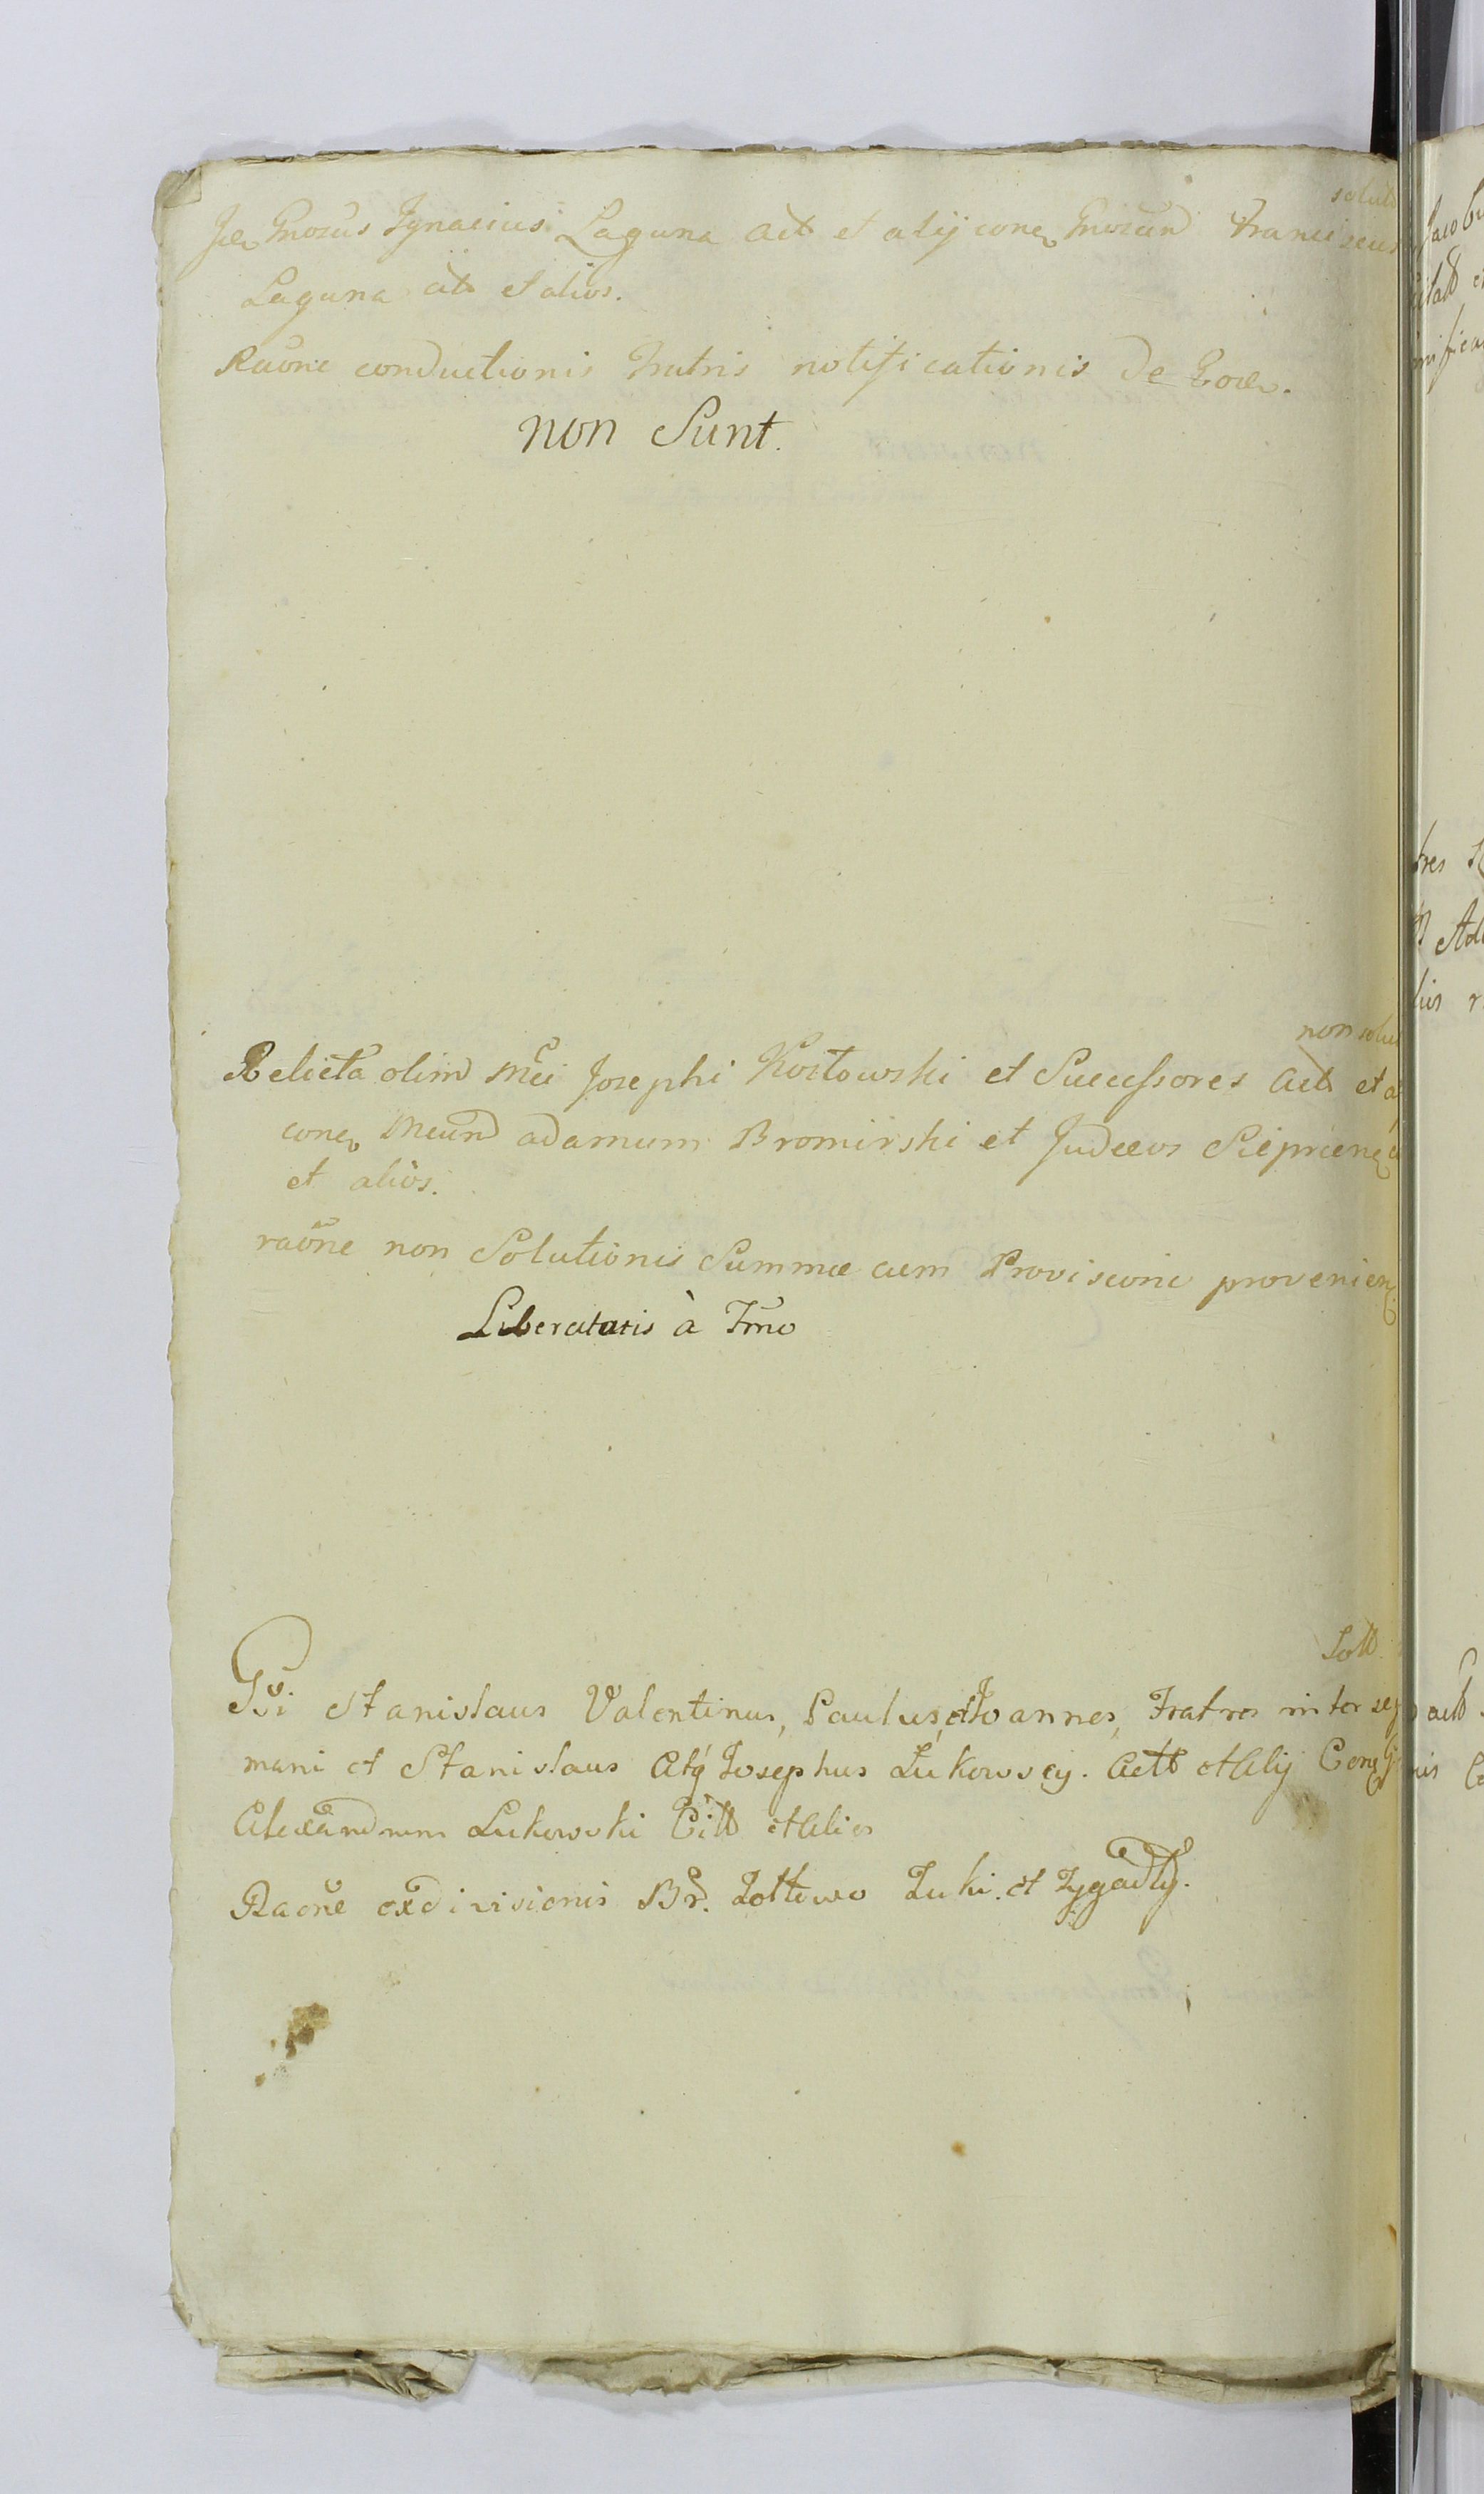 solut
Gnosus Ignacius Laguna act et alij conq Gnosum Franciscus
Laguna cit et alios.
Raõne conductionis fratris notificationis de
non Sunt.
non solu
Relicta olim Mci Josephi Kosłowski et Successores Act et a
conq Mcum adamum Bromirski et Judæos
et alios.
raõne non Solutionis Summæ cum Provisione provenien
Liberatatis à Tmo
Soll.
Gsi Stanislaus Valentinus, Paulus, et Joannes, Fratres inter se
mani et Stanislaus Atq Josephus Łukowscy. Actt et Alij Conq
Alexandrum Łukowski Citt et Alios
Raõne exdivisionis Br. Żołtowo Łuki. et